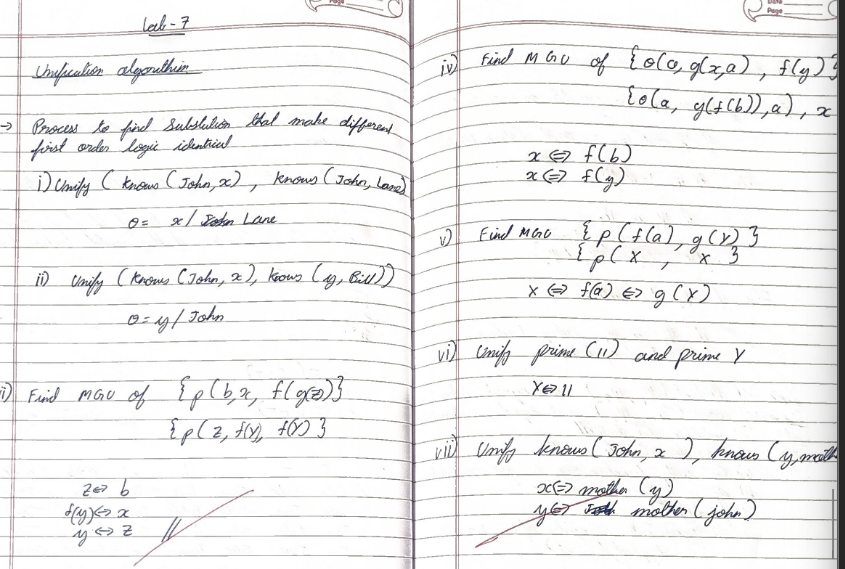 Lab - 7
Unification algorithm
→ Process to find Substution that make different
first order logic identical
i) Unify ( knows (John, x) , knows (John, Lane)
θ = x / Lane
ii) Unify (knows (John, x), knows (y, Bill))
θ = y / John
i) Find MGU of { p ( b, x, f(g(z)) }
{ p ( z, f(Y), f(Y) }
z ⇔ b
f(y) ⇔ x
y ⇔ z
Page
iv) Find MGU of { o(a, g(x,a) , f(y) }
{ o(a, g(f(b)), a) , x
x ⇔ f(b)
x ⇔ f(y)
v) Find MGU { p ( f(a), g(Y) }
{ p ( X , X }
X ⇔ f(a) ⇔ g(Y)
vi) Unify prime (11) and prime Y
Y ⇔ 11
vii) Unify knows ( John, x ), knows (y, moth
x ⇔ mother (y)
y ⇔ mother (john)
Date
Page